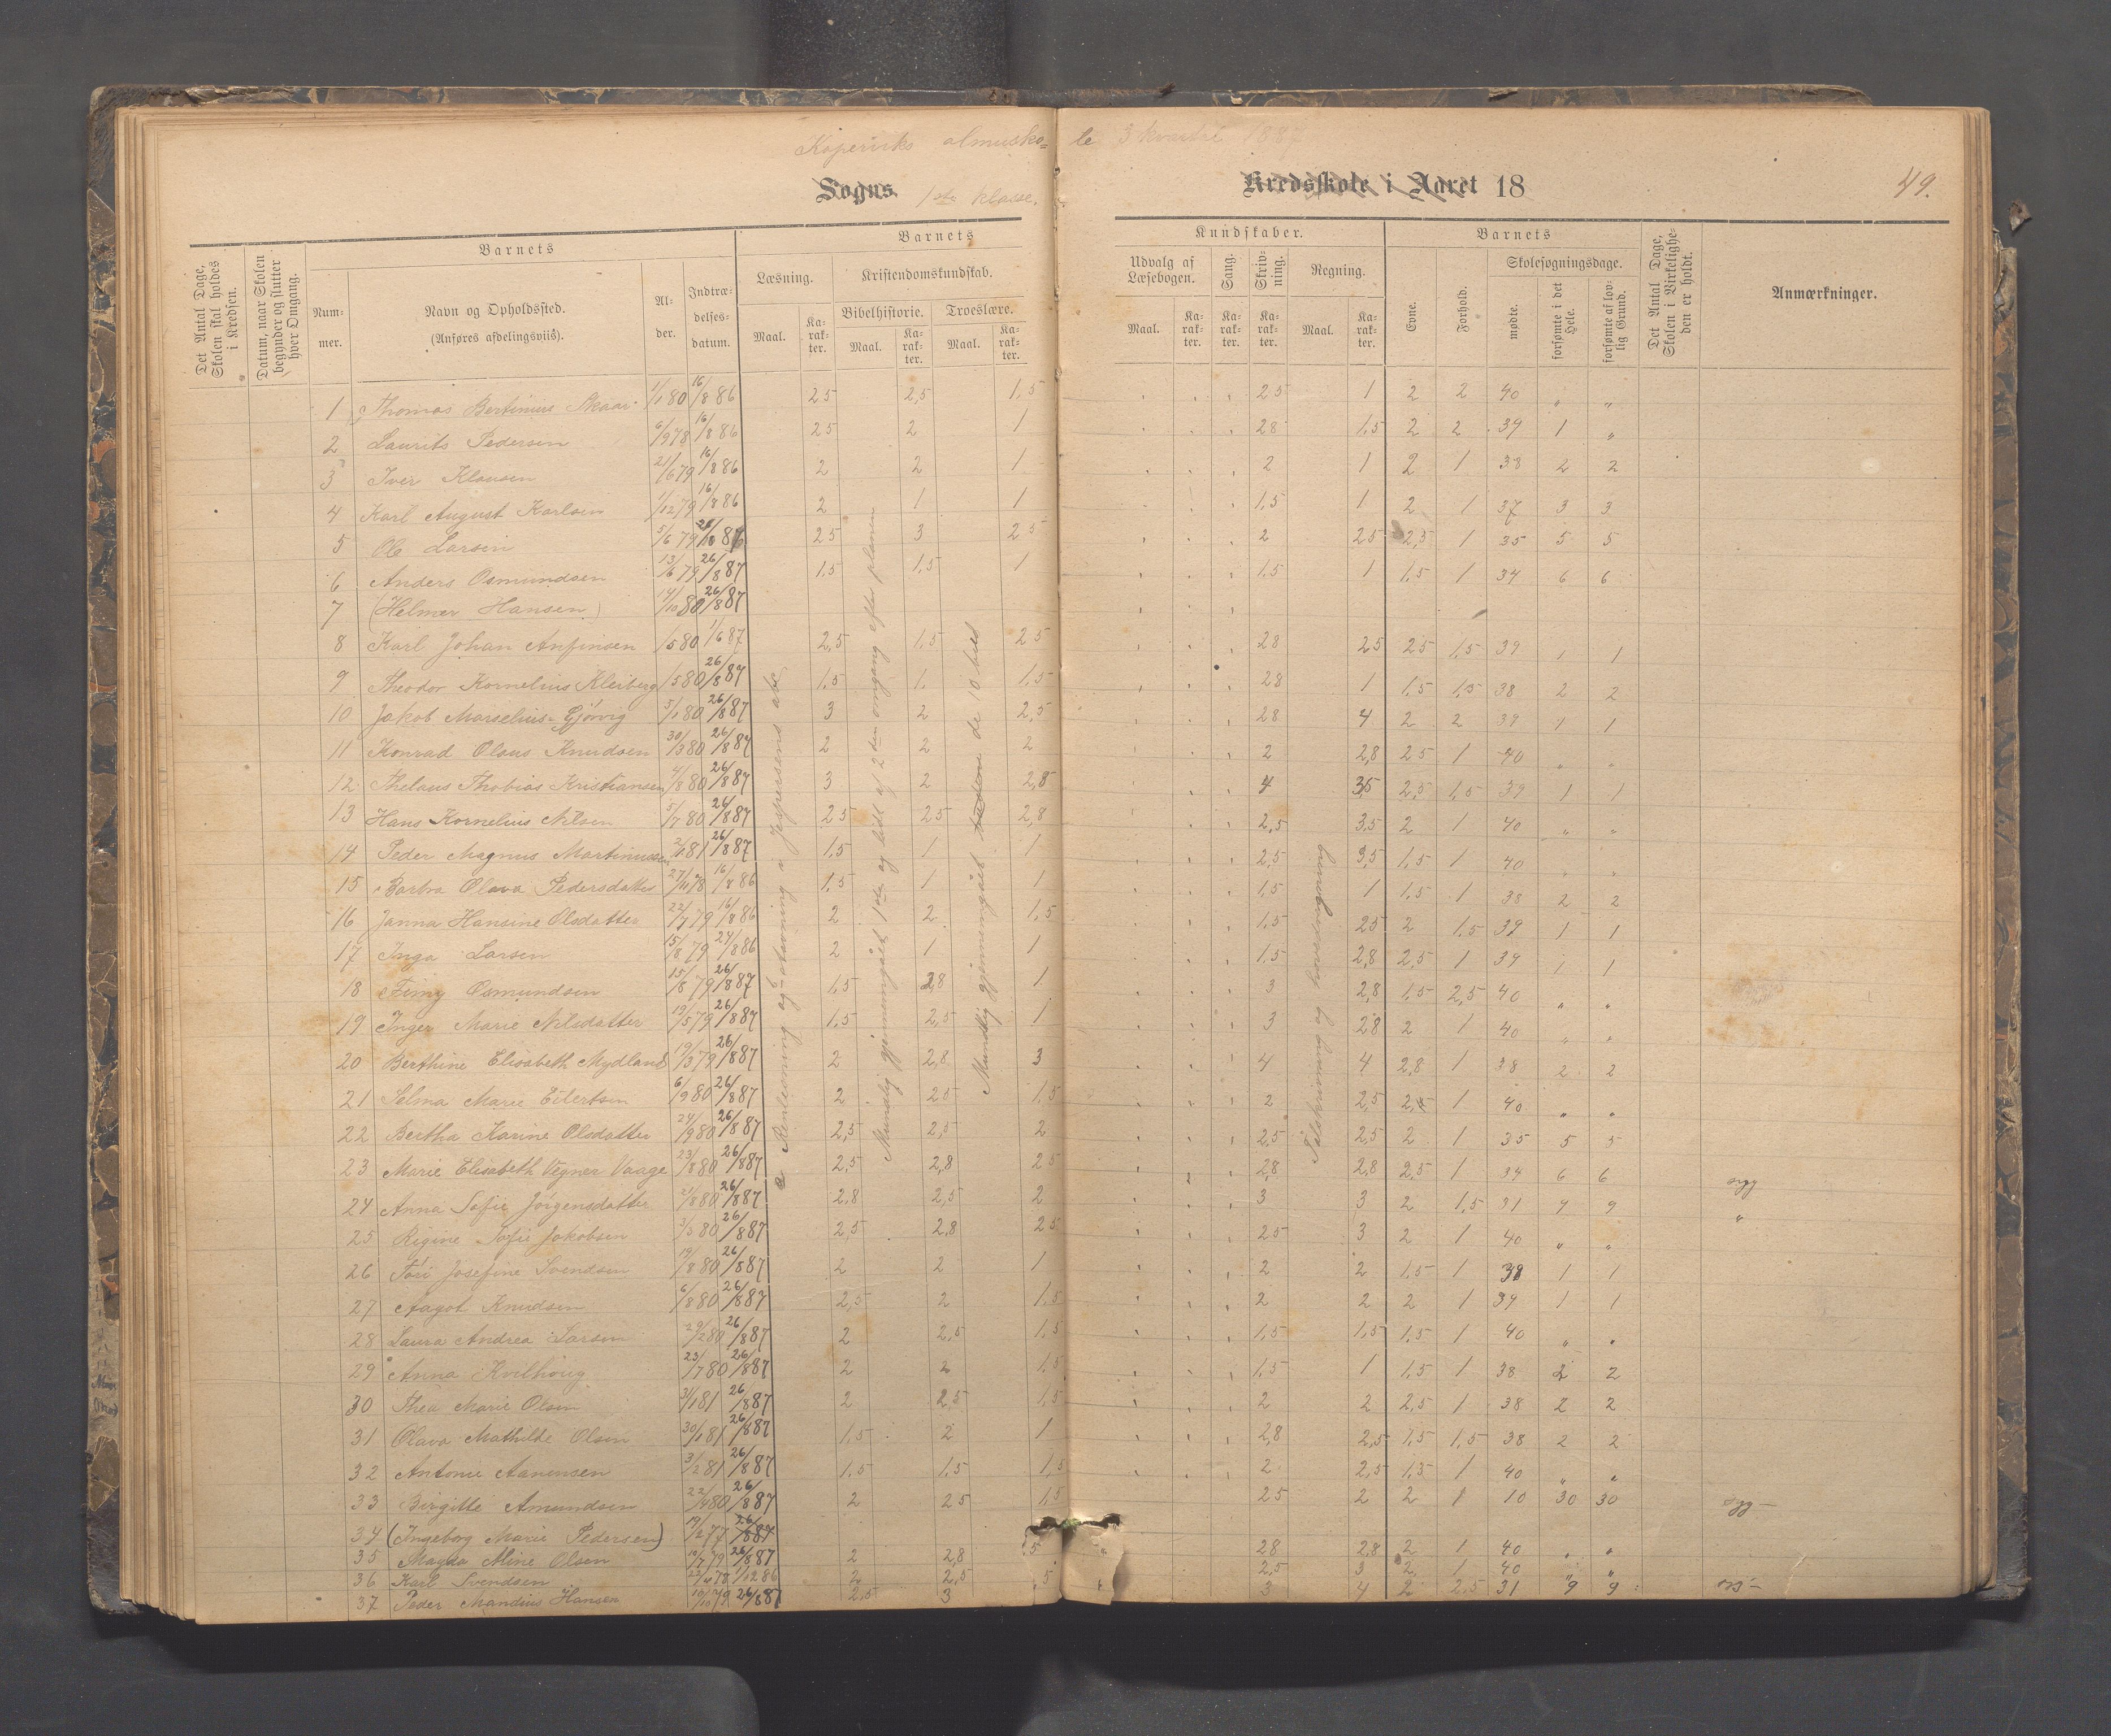 Kopervicks almusko= le 3 kvartal 1887
Sogns 1ste klasse. Kredsskole i Aaret 18 49.
Det Antal Dage, Skolen skal holdes i Kredsen.
Datum, naar Skolen begynder og slutter hver Omgang.
Barnets
Num- mer.
Navn og Opholdssted. (Anføres afdelingsviis).
Al- der.
Indtræ- delses- datum.
Barnets Kundskaber.
Læsning.
Maal.
Ka- rak- ter.
Kristendomskundskab.
Bibelhistorie.
Maal.
Ka- rak- ter.
Troeslære.
Maal.
Ka- rak- ter.
Udvalg af Læsebogen.
Maal.
Ka- rak- ter.
Sang.
Ka- rak- ter.
Skriv- ning.
Ka- rak- ter.
Regning.
Maal.
Ka- rak- ter.
Barnets
Evne.
Forhold.
Skolesøgningsdage.
mødte.
forsømte i det Hele.
forsømte af lov- lig Grund.
Det Antal Dage, Skolen i Virkelighe- den er holdt.
Anmærkninger.
1 Thomas Bertinius Skaar 1/1 80 16/8 86 2,5 2,5 1,5 2,5 1 2 2 40 „ „
2 Laurits Pedersen 6/9 78 16/8 86 2,5 2 1 2,8 1,5 2 2 39 1 „
3 Iver Klausen 21/6 79 16/8 86 2 2 1 2 1 2 1 38 2 2
4 Karl August Karlsen 1/12 79 16/8 86 2 1 1 1,5 1 2 1 37 3 3
5 Ole Larsen 5/6 79 2,5 3 2,5 2 2,5 2,5 1 35 5 5
6 Anders Osmundsen 13/6 79 26/8 87 1,5 1,5 1 1,5 1 1,5 1 34 6 6
7 (Helmer Hansen) 14/10 80 26/8 87
8 Karl Johan Anfinsen /5 80 1/6 87 2,5 1,5 2,5 2,8 2,5 2,5 1,5 39 1 1
9 Theodor Kornelius Kleiberg /5 80 26/8 87 1,5 1, 1,5 2,8 1 1,5 1,5 38 2 2
10 Jakob Marselius Gjörvig 5/1 80 26/8 87 3 2 2,5 2,8 4 2 2 39 1 1
11 Konrad Olaus Knudsen 30/3 80 26/8 87 2 2 2 2 2,8 2,5 1 40 „ „
12 Thelaus Thobias Kristiansen 4/8 80 26/8 87 3 2 2,8 4 3,5 2,5 1,5 39 1 1
13 Hans Kornelius Nilsen 5/7 80 26/8 87 2,5 2,5 2,8 2,5 3,5 2 1 40 „ „
14 Peder Magnus Martinussen 2/1 81 26/8 87 1,5 1 1 2,5 3,5 1,5 1 40 „ „
15 Barbra Olava Pedersdatter 27/11 78 16/8 86 1,5 1 1 1,5 1 1,5 1 38 2 2
16 Janna Hansine Olsdatter 22/7 79 16/8 86 2 2 1,5 1,5 2,5 2 1,5 39 1 1
17 Inga Larsen 15/8 79 24/8 86 2 1 1 1,5 2,8 2,5 1 39 1 1
18 Osmundsen 15/8 79 26/8 87 1,5 2,8 1 3 2,8 1,5 2,5 40 „ „
19 Inger Marie Nilsdatter 19/5 79 26/8 87 1,5 2,5 1 3 2,8 2 1 40 „ „
20 Berthine Elisabeth Mydland 19/3 79 26/8 87 2 2,8 3 4 4 2,8 1 38 2 2
21 Selma Marie Eilertsen 6/9 80 26/8 87 2 2,5 1,5 2 2,5 1 40 „ „
22 Bertha Karine Olsdatter 24/9 80 26/8 87 2,5 2,5 2 2,5 2,5 2 1 35 5 5
23 Marie Elisabeth Vegner Vaage 23/8 80 26/8 87 2,5 2,8 2,5 2,8 2,8 2,5 1 34 6 6 syg
24 Anna Sofie Jörgensdatter 2/8 80 26/8 87 2,8 2,5 2 3 3 2 1,5 31 9 9 „
25 Rigine Sofie Jakobsen 3/5 80 26/8 87 2,5 2,8 2,5 2,5 3 2 1 40 „ „
26 Josefine Svendsen 19/8 80 26/8 87 2 2 1 2 2 1,5 1 39 1 1
27 Aagot Knudsen 6/8 80 26/8 87 2,5 2 1,5 2 2 2 1 39 1 1
28 Laura Andrea Larsen 29/2 80 26/8 87 2 2,5 1,5 1,5 1,5 1,5 1 40 „ „
29 Anna Kvilhaug 23/7 80 26/8 87 2 2 1,5 1,5 1 1,5 1 38 2 2
30 Thea Marie Olsen 3/1 81 26/8 87 2 2,5 1,5 2 2 2,5 1 38 2 2
31 Olava Mathilde Olsen 30/1 81 26/8 87 1,5 2 1 2,8 2,5 1,5 1,5 38 2 2
32 Antonie Aanensen 3/2 81 26/8 87 1,5 1,5 1,5 2 2,5 1,5 1 40 „ „
33 Birgitte Amundsen 22/4 80 26/8 87 2 2,5 1,5 2,5 2 2 1 10 30 30 syg
34 (Ingeborg Marie Pedersen) 19/2 77 26/8 87
35 Magda Aline Olsen 10/7 79 26/8 87 2 2,8 ,5 2,8 2,8 2 1 40 „ „
36 Karl Svendsen 78 1/12 86 2 2,5 ,5 2,5 3 2 1 40 „ „
37 Peder Mandius Hansen 10/10 79 26/8 87 2,5 3 3 4 2 2,5 31 9 9
Renlæsning og atavning i Jespersens abc
Mundlig gjennemgået 1ste og lidt af 2den omgang efter planen
Mundlig gjennemgået de 10 bud
Talskrivning og hovedregning